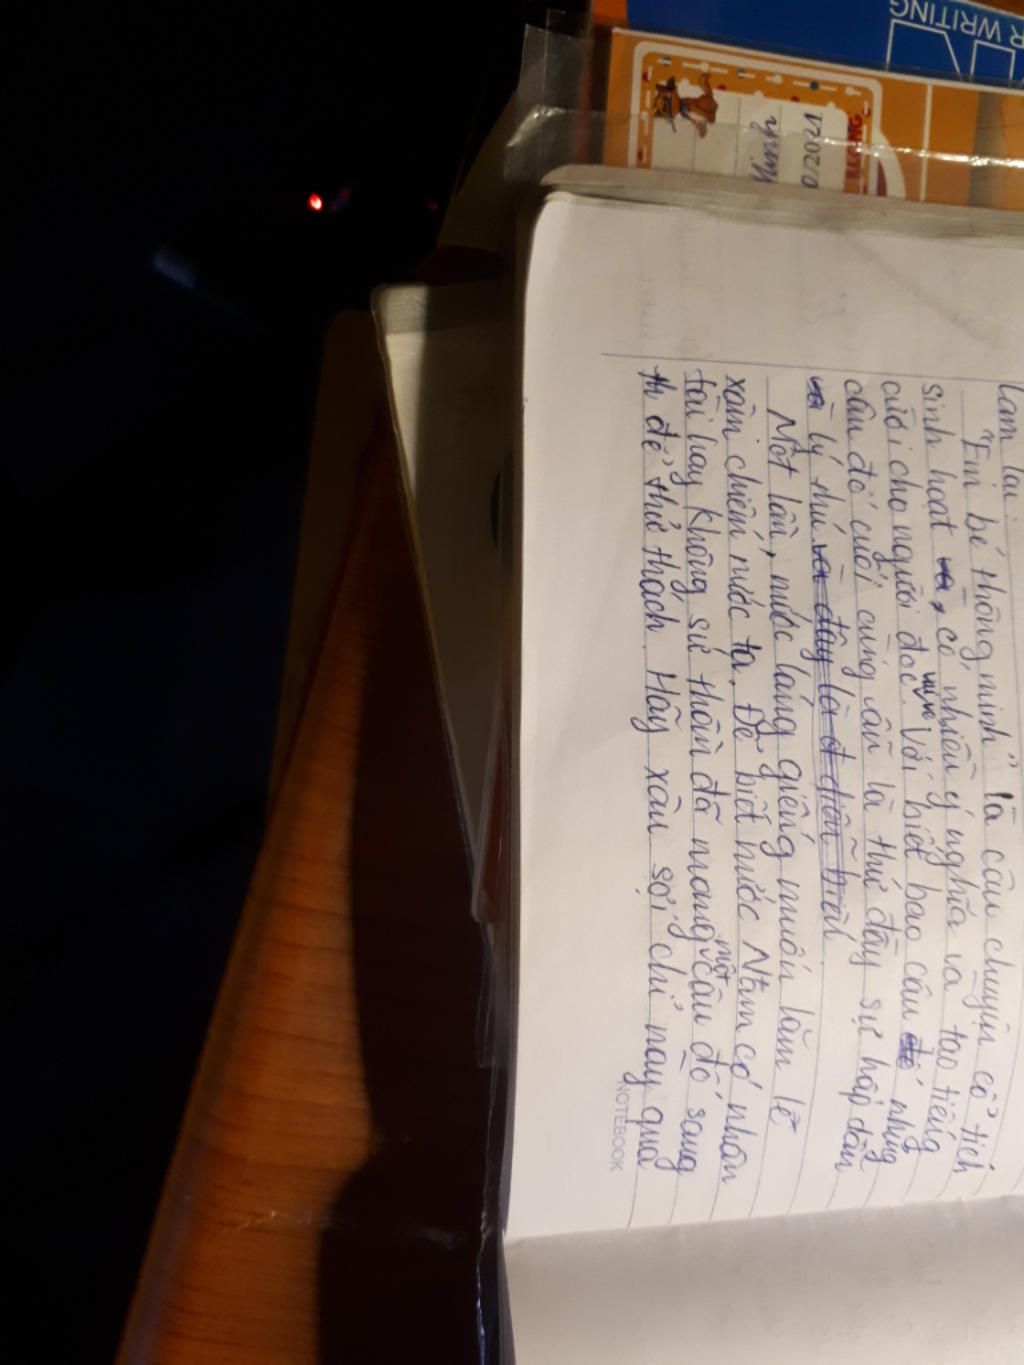 R WRITING
Minh
0/2021
KLONG
làm lại
"Em bé thông minh" là câu chuyện cổ tích
sinh hoạt và, có nhiều ý nghĩa và tạo tiếng
cười vui vẻ cho người đọc. Với biết bao câu đố nhưng
câu đố cuối cùng vẫn là thứ đầy sự hấp dẫn
và lý thú và đây là đ diễn biến.
Một lần, nước láng giềng muốn lăm le
xâm chiếm nước ta. Để biết nước Nam có nhân
tài hay không sứ thần đã mang một câu đố sang
th để thử thách. Hãy xâu sợi chỉ nay qua
NOTEBOOK